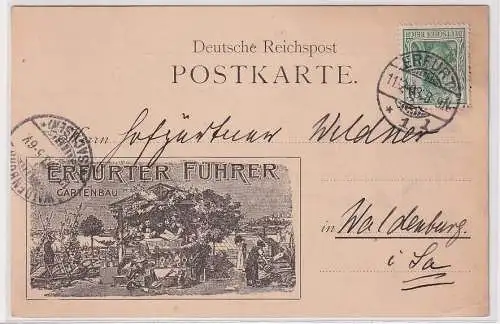 Deutsche Reichspost
POSTKARTE.
DEUTSCHES REICH
ERFURT
* 1 *
Herrn Hofgärtner Weldner
ERFURTER FÜHRER
GARTENBAU
in Waldenburg
i Sa